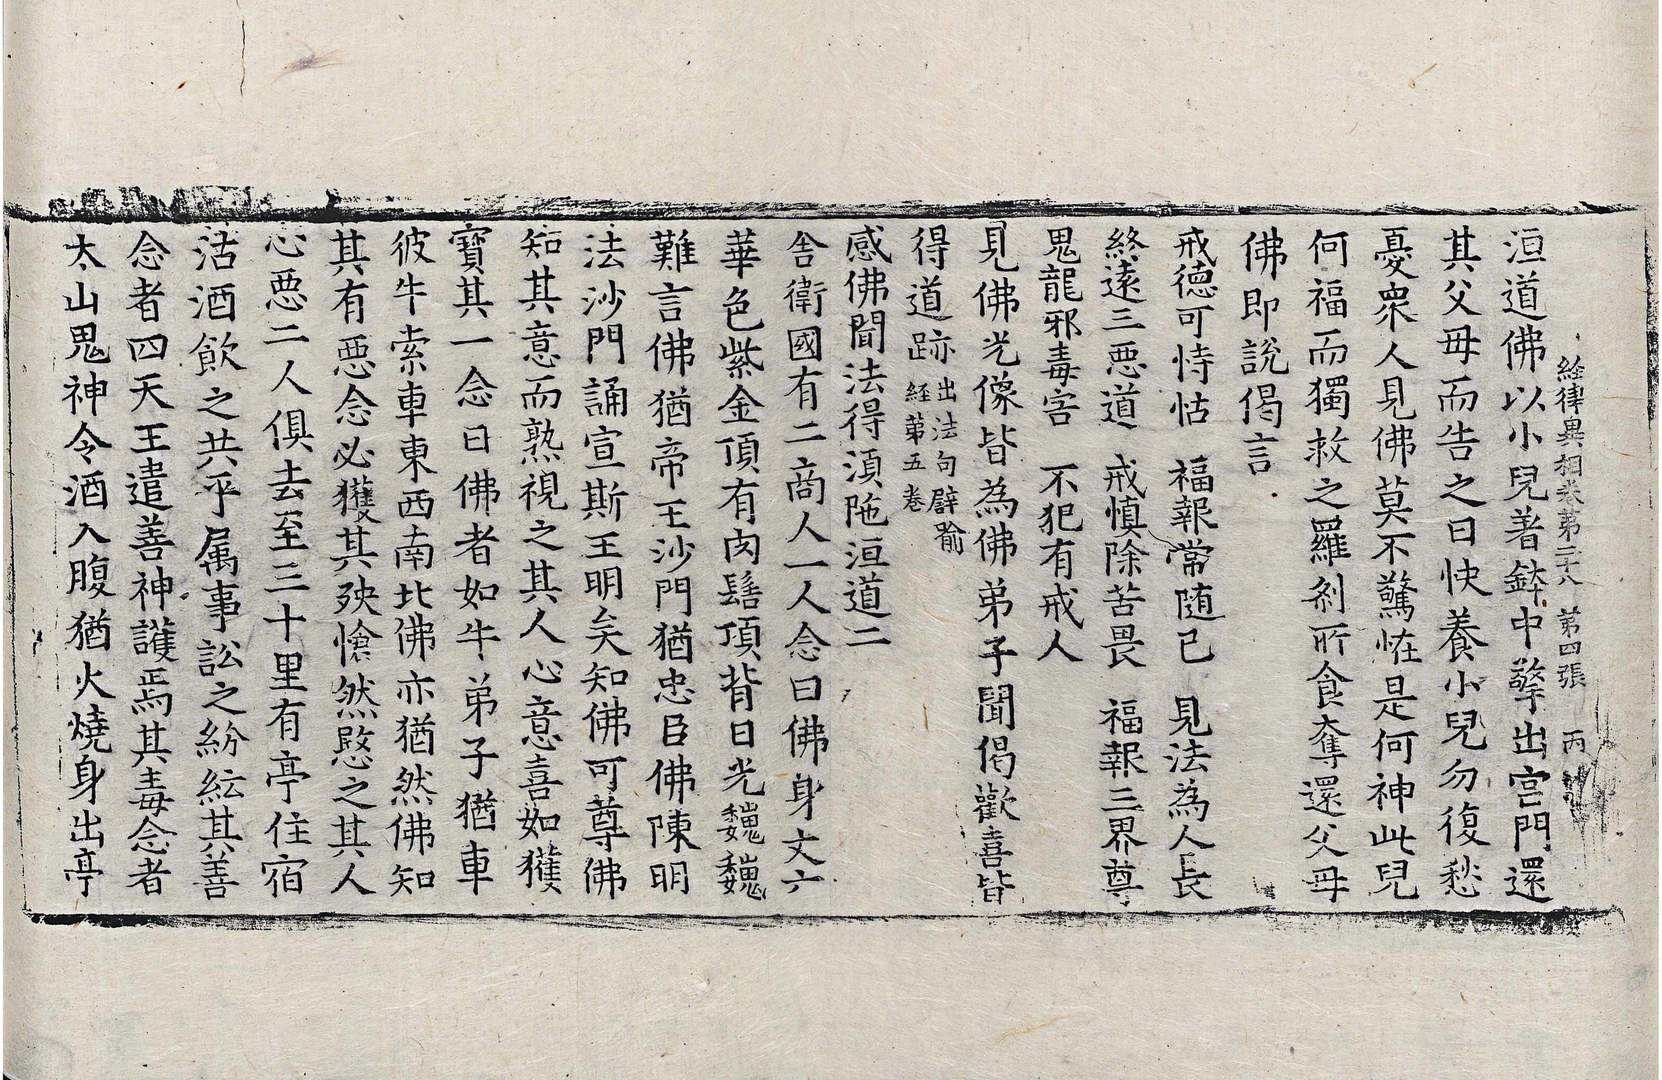 經律異相卷第三十八 第四張 丙
洹道佛以小兒著鉢中擎出宮門還
其父母而告之曰快養小兒勿復愁
憂衆人見佛莫不驚恠是何神此兒
何福而獨救之羅剎所食奪還父母
佛即說偈言
戒德可恃怙 福報常随己 見法為人長
終遠三惡道 戒慎除苦畏 福報三界尊
鬼龍邪毒害 不犯有戒人
見佛光像皆為佛弟子聞偈歡喜皆
得道跡出法句譬喻經第五卷
感佛聞法得須陁洹道二
舍衛國有二商人一人念曰佛身丈六
華色紫金頂有肉髻項背日光巍巍
難言佛猶帝王沙門猶忠臣佛陳明
法沙門誦宣斯王明矣知佛可尊佛
知其意而熟視之其人心意喜如獲
寶其一念曰佛者如牛弟子猶車
彼牛索車東西南北佛亦猶然佛知
其有惡念必獲其殃愴然愍之其人
心惡二人俱去至三十里有亭住宿
沽酒飲之共平属事訟之紛紜其善
念者四天王遣善神護焉其毒念者
太山鬼神令酒入腹猶火燒身出亭